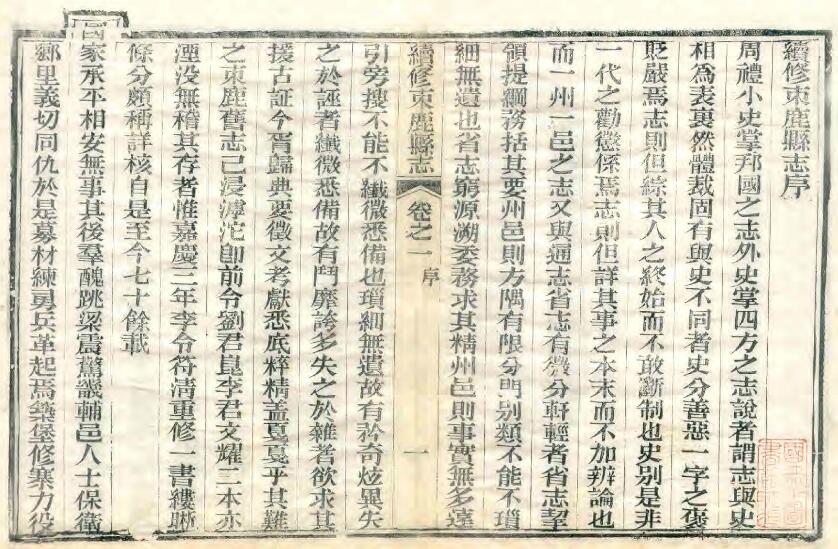 續修束鹿縣志序
周禮小史掌邦國之志外史掌四方之志說者謂志與史
相為表裏然體裁固有與史不同者史分善惡一字之褒
貶嚴焉志則但綜其人之終始而不敢斷制也史別是非
一代之勸懲係焉志則但詳其事之本末而不加辨論也
而一州一邑之志又與通志省志有微分軒輊者省志挈
領提綱務括其要州邑則方隅有限分門別類不能不瑣
細無遺也省志窮源溯委務求其精州邑則事實無多遠
續修束鹿縣志
卷之一
序
一
引旁搜不能不纖微悉備也瑣細無遺故有矜奇炫異失
之於誣者纖微悉備故有鬥靡誇多失之於雜者欲求其
援古証今胥歸典要徵文考獻悉底粹精蓋戛戛乎其難
之束鹿舊志已浸滹沱即前令劉君崑李君文耀二本亦
湮没無稽其存者惟嘉慶三年李令符清重修一書縷晰
條分頗稱詳核自是至今七十餘載
國家承平相安無事其後羣醜跳梁震驚畿輔邑人士保衛
鄉里義切同仇於是募材練勇兵革起焉築堡修寨力役